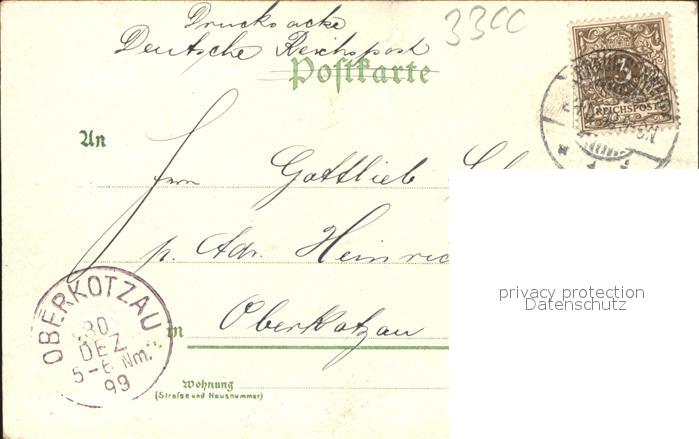 Drucksache
Deutsche Reichspost
33CC
Postkarte
3
REICHSPOST
An
Herrn Gottlieb
p. Adr. Heinric
in Oberkotzau
OBERKOTZAU
30
DEZ
5-6 Nm.
99
Wohnung
(Strafse und Hausnummer)
privacy protection
Datenschutz